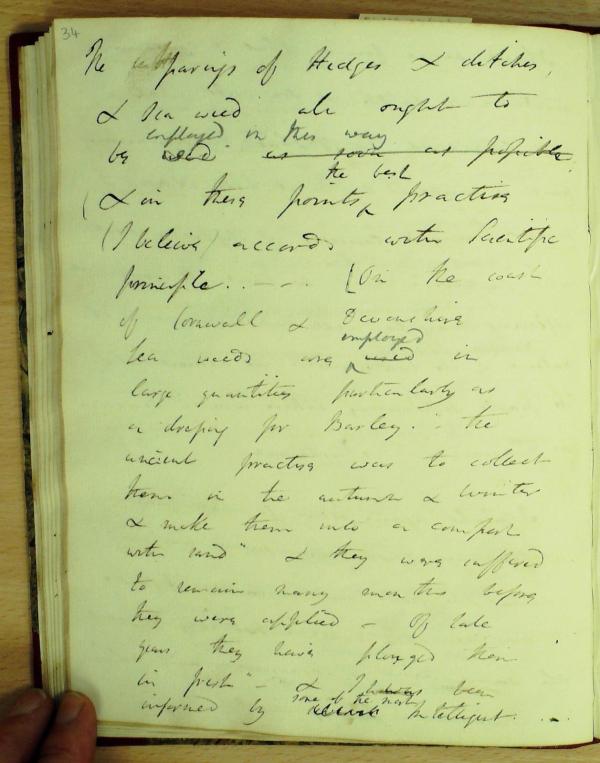 34
The parings of Hedges & ditches,
& Sea weed all ought to
employed in this way
be used as soon as possible
the best
(& in these points ^ practise
(I believe) accords with Scientific
principle. . - - . [On the coast
of Cornwall & Devonshire
employed
Sea weeds are ^ used in
large quantities particularly as
a dressing for Barley. - the
ancient practise was to collect
them in the autumn & winter
& make them into a compost
with sand" & they were suffered
to remain many months before
they were applied - Of late
years they have plouged them
in fresh" - & I have been
some of the most
informed by Intelligent